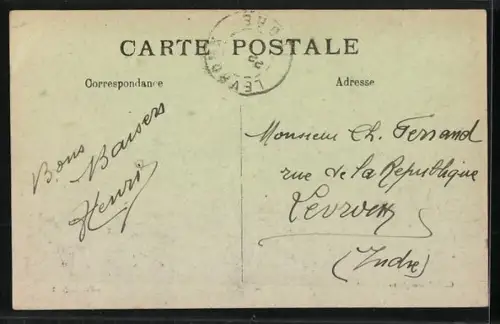 CARTE POSTALE
LEVROUX
Correspondance
Adresse
Bons
Baisers
Henri
Monsieur Ch. Ferrand
rue de la République
Levroux
(Indre)